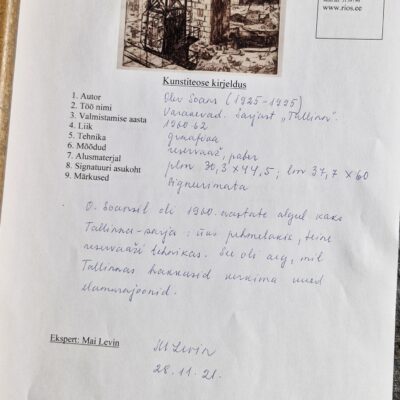 www.rios.ee
Kunstiteose kirjeldus
1. Autor Olev Soans (1925-1995)
2. Töö nimi Varaaevad. Sarjast „Tallinn".
3. Valmistamise aasta 1960-62
4. Liik graafika
5. Tehnika reservaaž, paber
6. Mõõdud plm 30,3 x 44,5; lm 37,7 x 60
7. Alusmaterjal
8. Signatuuri asukoht signeerimata
9. Märkused
O. Soansil oli 1960. aastate algul kaks
Tallinna-sarja: üks pehmelakis, teine
reservaaži tehnikas. See oli aeg, mil
Tallinnas hakkasid kerkima uued
elamurajoonid.
Ekspert: Mai Levin
M Levin
28.11.21.